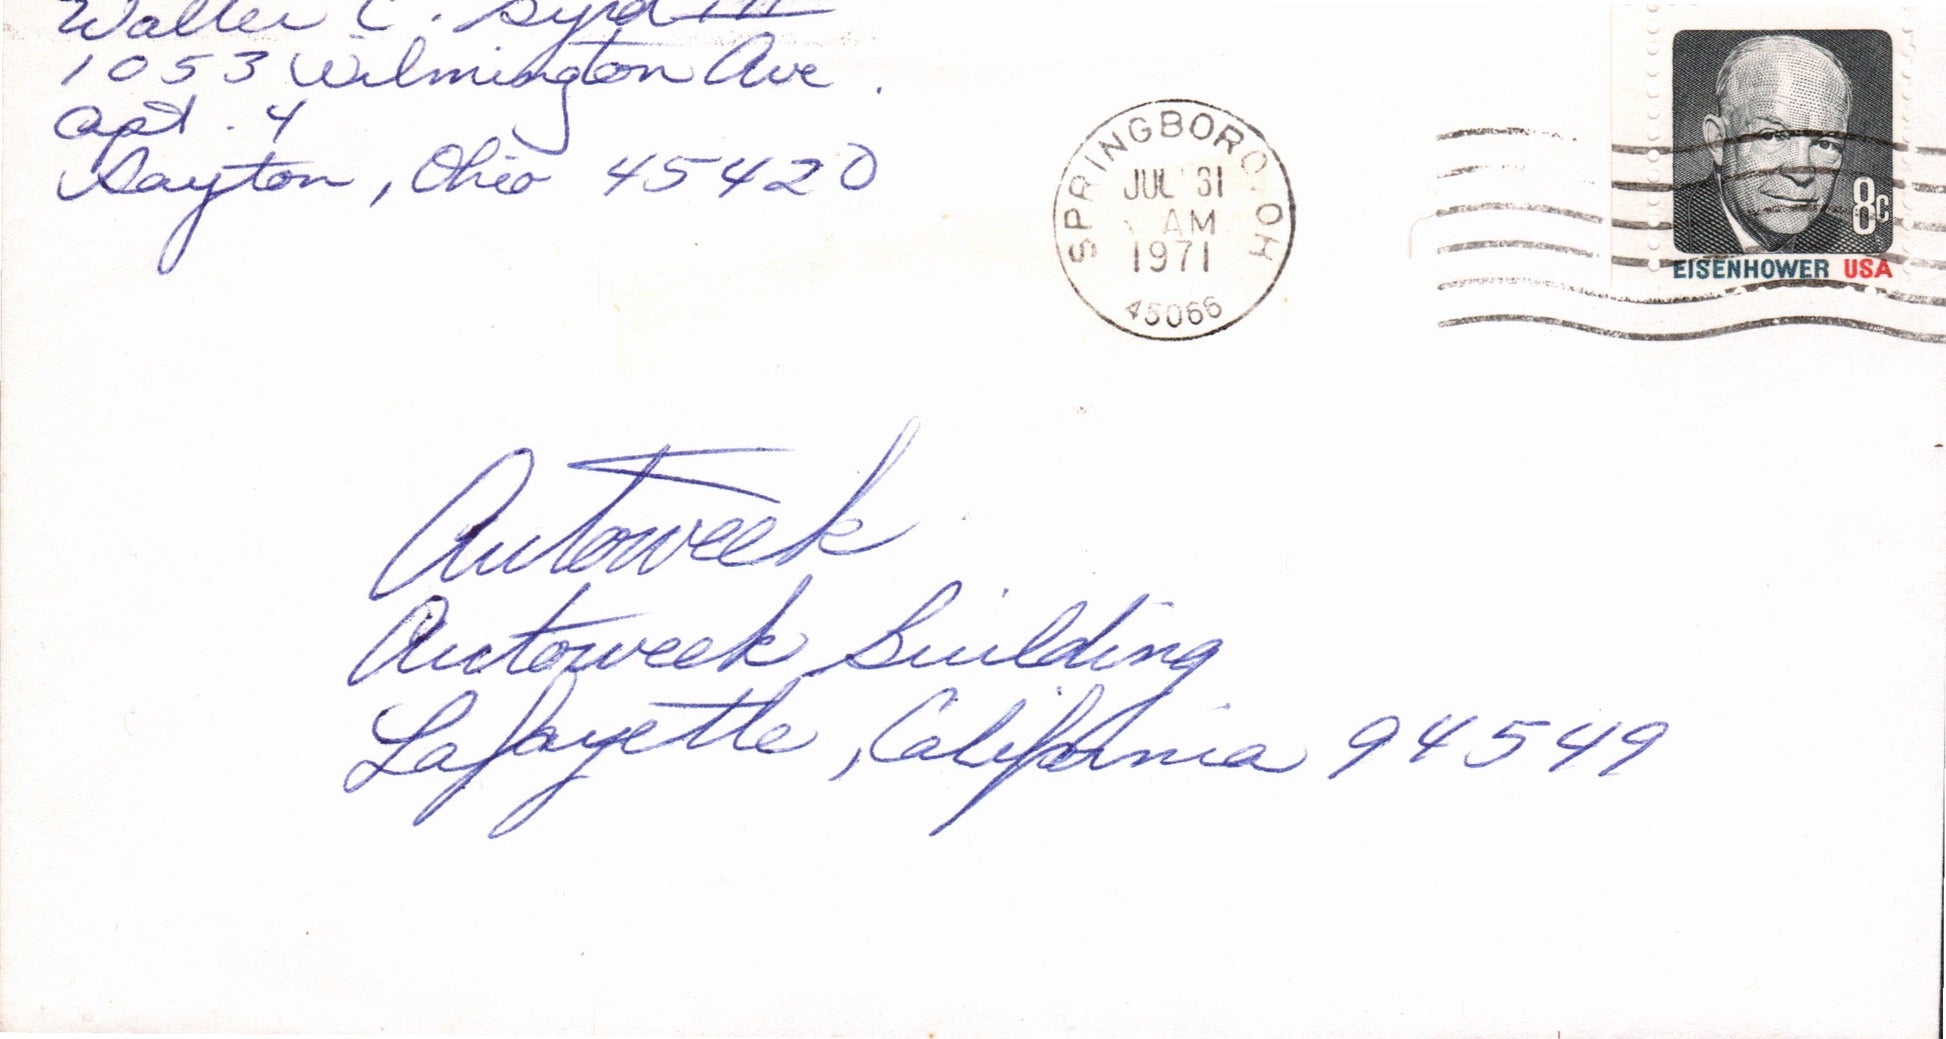 Walter C. Byrd III
1053 Wilmington Ave.
Apt. 4
Dayton, Ohio 45420
SPRINGBORO, OH
JUL 31
AM
1971
45066
8c
EISENHOWER USA
Autoweek
Autoweek Building
Lafayette, California 94549